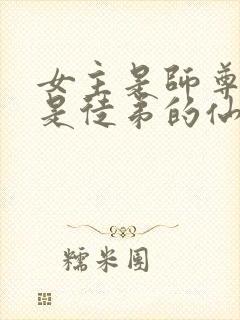 女主是師尊
是徒弟的仙
糯米團